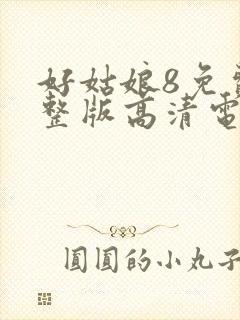 好姑娘8免
整版高清電
圓圓的小丸子